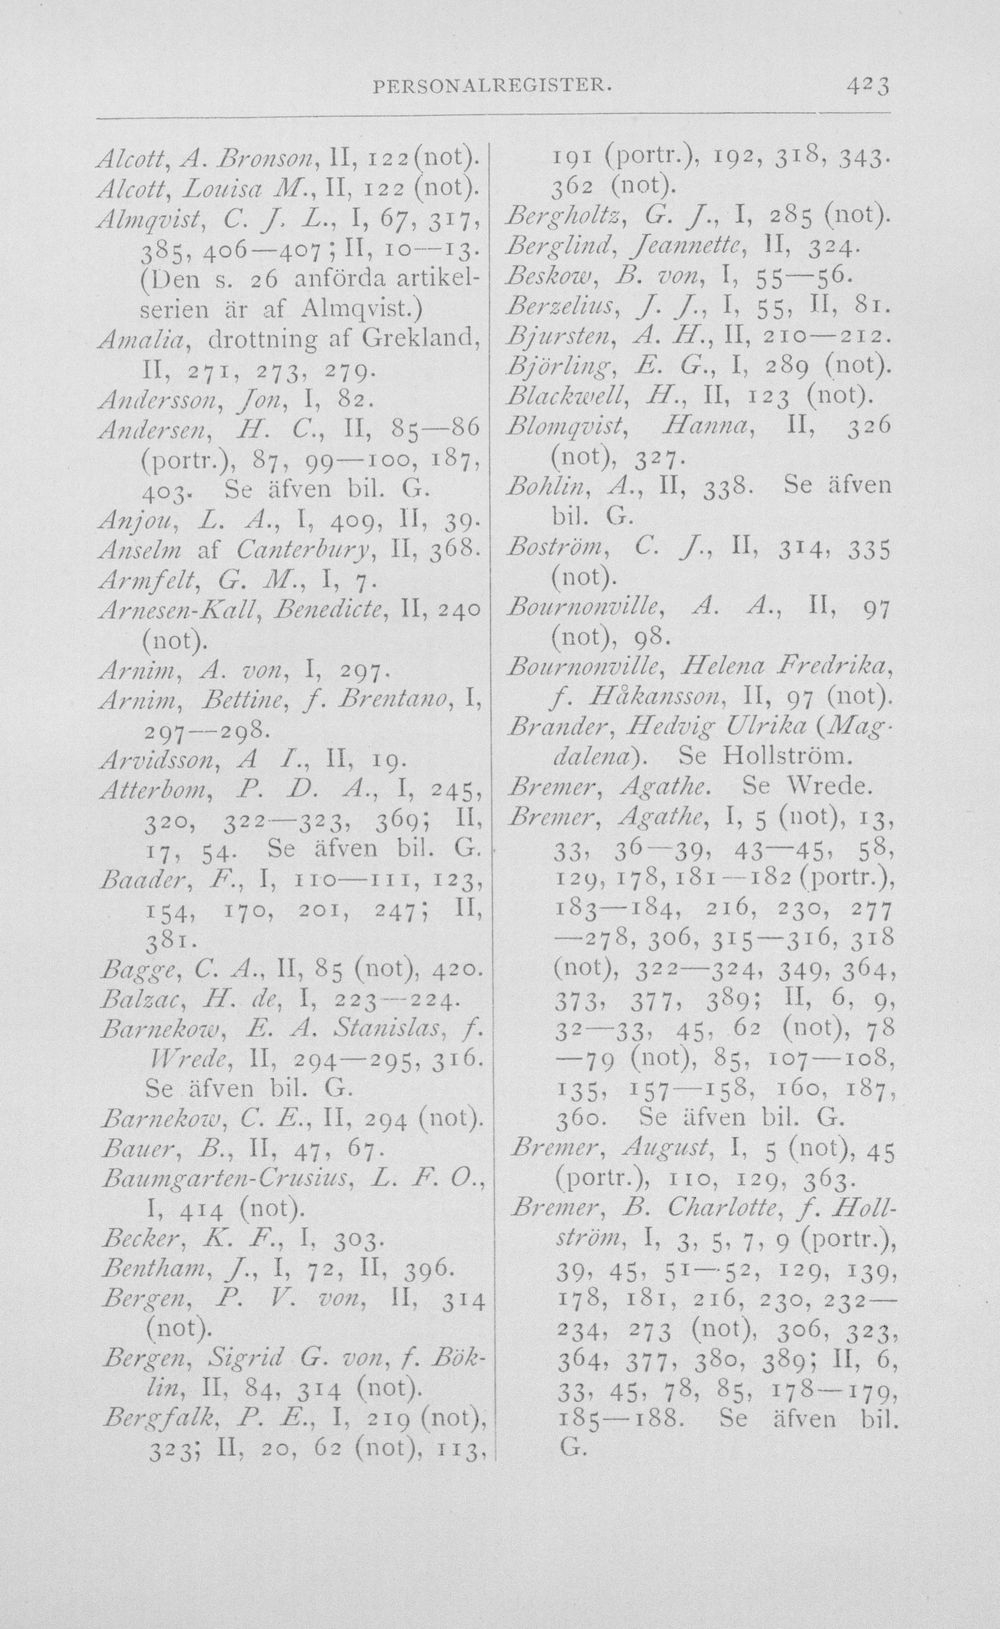 PERSONALREGISTER. 423
Alcott, A. Bronson, II, 122 (not).
Alcott, Louisa M., II, 122 (not).
Almqvist, C. J. L., I, 67, 317,
385, 406—407; II, 10—13.
(Den s. 26 anförda artikel-
serien är af Almqvist.)
Amalia, drottning af Grekland,
II, 271, 273, 279.
Andersson, Jon, I, 82.
Andersen, H. C., II, 85—86
(portr.), 87, 99—100, 187,
403. Se äfven bil. G.
Anjou, L. A., I, 409, II, 39.
Anselm af Canterbury, II, 368.
Armfelt, G. M., I, 7.
Arnesen-Kall, Benedicte, II, 240
(not).
Arnim, A. von, I, 297.
Arnim, Bettine, f. Brentano, I,
297—298.
Arvidsson, A I., II, 19.
Atterbom, P. D. A., I, 245,
320, 322—323, 369; II,
17, 54. Se äfven bil. G.
Baader, F., I, 110—111, 123,
154, 170, 201, 247; II,
381.
Bagge, C. A., II, 85 (not), 420.
Balzac, H. de, I, 223—224.
Barnekow, E. A. Stanislas, f.
Wrede, II, 294—295, 316.
Se äfven bil. G.
Barnekow, C. E., II, 294 (not).
Bauer, B., II, 47, 67.
Baumgarten-Crusius, L. F. O.,
I, 414 (not).
Becker, K. F., I, 303.
Bentham, J., I, 72, II, 396.
Bergen, P. V. von, II, 314
(not).
Bergen, Sigrid G. von, f. Bök-
lin, II, 84, 314 (not).
Bergfalk, P. E., I, 219 (not),
323; II, 20, 62 (not), 113,
191 (portr.), 192, 318, 343.
362 (not).
Bergholtz, G. J., I, 285 (not).
Berglind, Jeannette, II, 324.
Beskow, B. von, I, 55—56.
Berzelius, J. J., I, 55, II, 81.
Bjursten, A. H., II, 210—212.
Björling, E. G., I, 289 (not).
Blackwell, H., II, 123 (not).
Blomqvist, Hanna, II, 326
(not), 327.
Bohlin, A., II, 338. Se äfven
bil. G.
Boström, C. J., II, 314, 335
(not).
Bournonville, A. A., II, 97
(not), 98.
Bournonville, Helena Fredrika,
f. Håkansson, II, 97 (not).
Brander, Hedvig Ulrika (Mag-
dalena). Se Hollström.
Bremer, Agathe. Se Wrede.
Bremer, Agathe, I, 5 (not), 13,
33, 36—39, 43—45, 58,
129, 178, 181—182 (portr.),
183—184, 216, 230, 277
—278, 306, 315—316, 318
(not), 322—324, 349, 364,
373, 377, 389; II, 6, 9,
32—33, 45, 62 (not), 78
—79 (not), 85, 107—108,
135, 157—158, 160, 187,
360. Se äfven bil. G.
Bremer, August, I, 5 (not), 45
(portr.), 110, 129, 363.
Bremer, B. Charlotte, f. Holl-
ström, I, 3, 5, 7, 9 (portr.),
39, 45, 51—52, 129, 139,
178, 181, 216, 230, 232—
234, 273 (not), 306, 323,
364, 377, 380, 389; II, 6,
33, 45, 78, 85, 178—179,
185—188. Se äfven bil.
G.